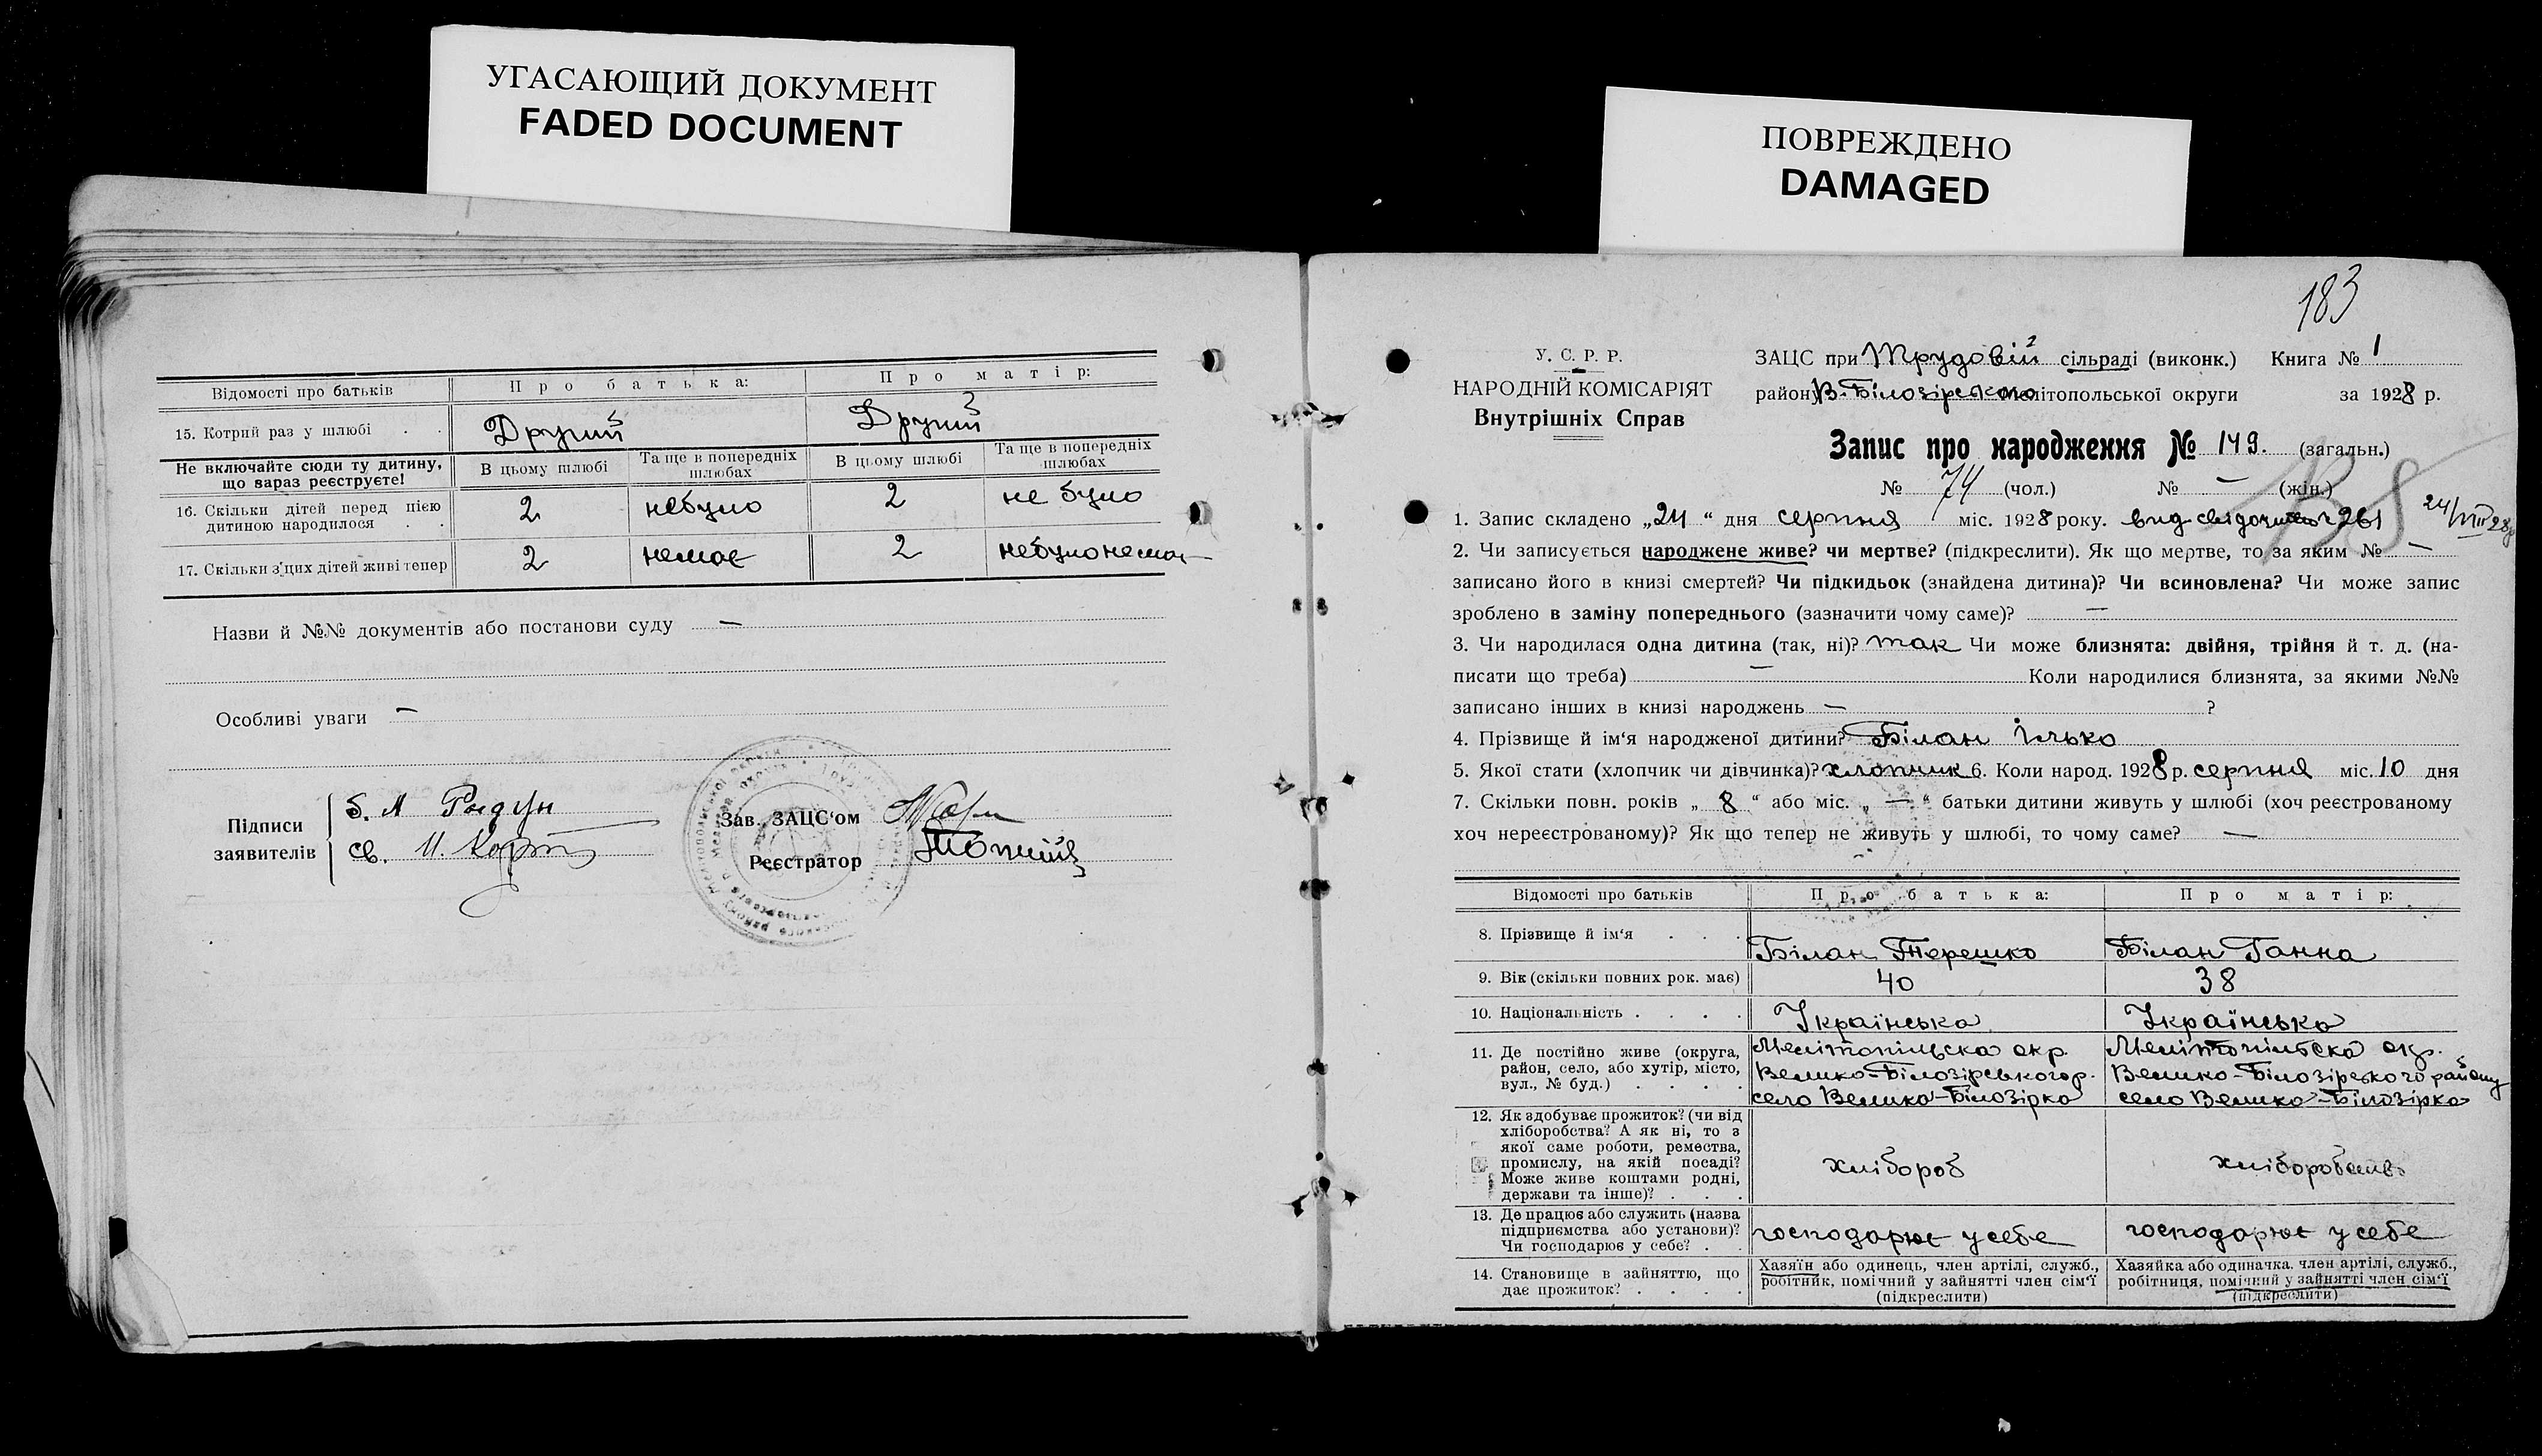 УГАСАЮЩИЙ ДОКУМЕНТ
FADED DOCUMENT
ПОВРЕЖДЕНО
DAMAGED
Відомості про батьків Про батька: Про матір:
15. Котрий раз у шлюбі . . Другий Другий
Не включайте сюди ту дитину, що вараз реєструєте! В цьому шлюбі Та ще в попередніх шлюбах В цьому шлюбі Та ще в попередніх шлюбах
16. Скільки дітей перед пією дитиною народилося . . 2 небуло 2 не було
17. Скільки з'цих дітей живі тепер 2 немає 2
Назви й №№ документів або постанови суду —
Особливі уваги —
Підписи заявителів
б. А
св. И.
Зав. ЗАЦС'ом
Реєстратор
183
У. С. Р. Р.
НАРОДНІЙ КОМІСАРІЯТ
Внутрішніх Справ
ЗАЦС при Трудовій 2 сільраді (виконк.) Книга № 1
району В-Білозірського Мелітопольської округи за 1928 р.
Запис про народження № 149. (загальн.)
№ 74 (чол.) № — (жін.)
1. Запис складено „24“ дня серпня міс. 1928 року. вид 261 24/VIII 28р
2. Чи записується народжене живе? чи мертве? (підкреслити). Як що мертве, то за яким № —
записано його в книзі смертей? Чи підкидьок (знайдена дитина)? Чи всиновлена? Чи може запис
зроблено в заміну попереднього (зазначити чому саме)? —
3. Чи народилася одна дитина (так, ні)? так Чи може близнята: двійня, трійня й т. д. (на-
писати що треба) — Коли народилися близнята, за якими №№
записано інших в книзі народжень — ?
4. Прізвище й ім'я народженої дитини? Білан Ілько
5. Якої стати (хлопчик чи дівчинка)? хлопчик 6. Коли народ. 1928 р. серпня міс. 10 дня
7. Скільки повн. років „ 8 “ або міс. „ — “ батьки дитини живуть у шлюбі (хоч реєстрованому
хоч нереєстрованому)? Як що тепер не живуть у шлюбі, то чому саме? —
Відомості про батьків Про батька: Про матір:
8. Прізвище й ім'я . . . Білан Терешко Білан Ганна
9. Вік (скільки повних рок. має) 40 38
10. Національність . . . . Українська Українська
11. Де постійно живе (округа, район, село, або хутір, місто, вул., № буд.) . . . .
Мелітопільска окр. Велико-Білозірського р. село Велико-Білозірка
Мелітопільска окр. Велико-Білозірского району село Велико-Білозірка
12. Як здобуває прожиток? (чи від хліборобства? А як ні, то з якої саме роботи, ремества, промислу, на якій посаді? Може живе коштами родні, держави та інше)? . . .
хлібороб хліборобств
13. Де працює або служить (назва підприємства або установи)? Чи господарює у себе? . .
господарює у себе господарює у себе
14. Становище в зайняттю, що дає прожиток? . . . .
Хазяїн або одинець, член артілі, служб., робітник, помічний у зайнятті член сім'ї (підкреслити)
Хазяйка або одиначка. член артілі, служб., робітниця, помічний у зайнятті член сім'ї (підкреслити)